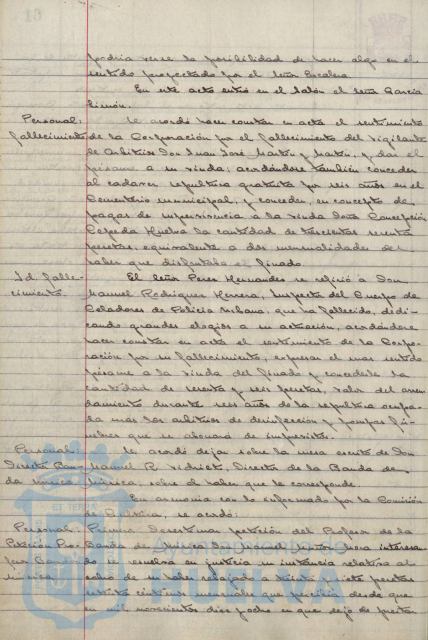 podria verse la posibilidad de hacer algo en el
sentido proyectado por el Señor Escalera.
En este acto entró en el Salón el Señor García
Simón.
Personal: Se acordó hacer constar en acta el sentimiento
fallecimiento de la Corporación por el fallecimiento del vigilante
de Arbitrios Don Juan José Martín y Martín, y dar el
pésame a su viuda; acordándose también conceder
al cadaver sepultura gratuita por seis años en el
Cementerio municipal, y conceder, en concepto de
pagas de supervivencia a la viuda Doña Concepción
Cepeda Huelva la cantidad de trescientas sesenta
pesetas, equivalente a dos mensualidades del
haber que disfrutaba el finado.
Id. falle- El Señor Perez Hernandez se refirió a Don
cimiento. Manuel Rodriguez Herrera, Inspector del Cuerpo de
Celadores de Policía Urbana, que ha fallecido, dedi-
cando grandes elogios a su actuación, acordándose
hacer constar en acta el sentimiento de la Corpo-
ración por su fallecimiento, expresar el mas sentido
pésame a la viuda del finado y concederle la
cantidad de sesenta y seis pesetas, valor del arren-
damiento durante seis años de la sepultura ocupa-
da mas los arbitrios de desinfección y pompas fú-
nebres que se abonará de imprevistos.
Personal: Se acordó dejar sobre la mesa escrito de Don
Director Ban- Manuel R. Director de la Banda de
da música música, sobre el haber que le corresponde.
En armonia con lo informado por la Comisión
de Politica, se acordó:
Personal: Primero: Desestimar petición del Profesor de la
Petición Pro- Banda de música Don interesa
fesor Banda se resuelva en justicia su instancia relativa al
música cobro de su haber rebajado a treinta y siete pesetas
céntimos mensuales que percibía desde que
en mil novecientos diez y ocho en que dejó de prestar
Ayuntamiento de
HUELVA